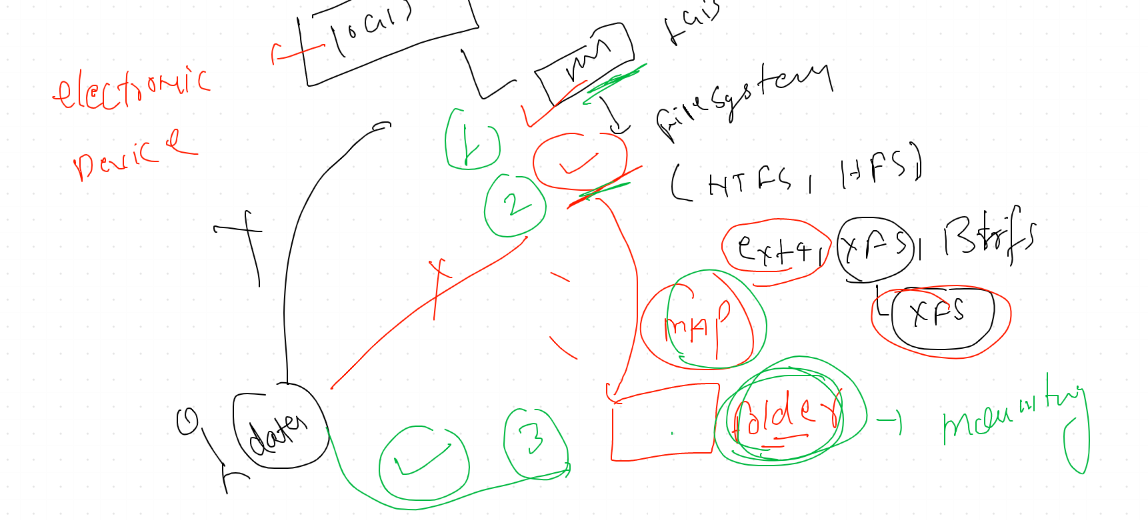 electronic
Device
filesystem
(NTFS, HFS)
1
2
ext4, XFS, Btrfs
XFS
MAP
data
3
folder → mounting